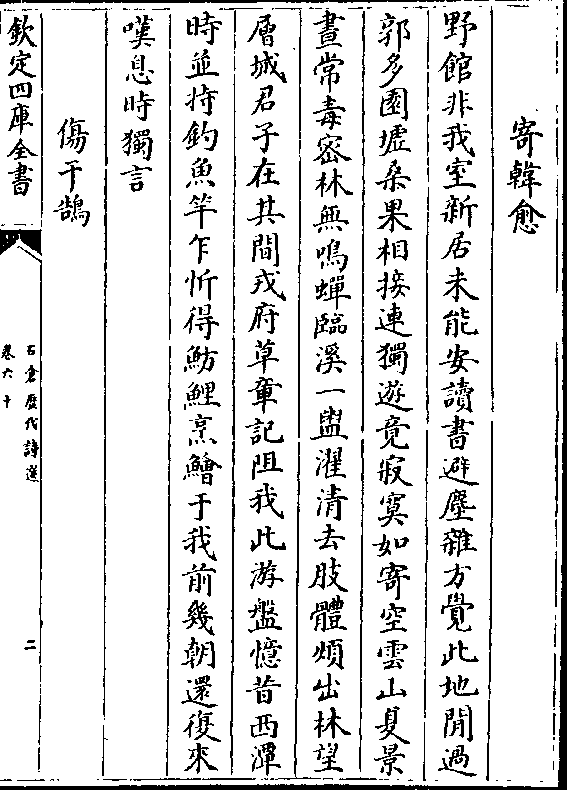 寄韓愈
野館非我室新居未能安讀書避塵雜方覺此地閒過
郭多園墟桑果相接連獨遊竟寂寞如寄空雲山夏景
晝常毒密林無鳴蟬臨溪一盥濯清去肢體煩出林望
層城君子在其間戎府草章記阻我此游盤憶昔西潭
時並持釣魚竿乍忻得魴鯉烹鱠于我前幾朝還復來
嘆息時獨言
傷干鵠
欽定四庫全書
石倉歷代詩選
卷六十
二